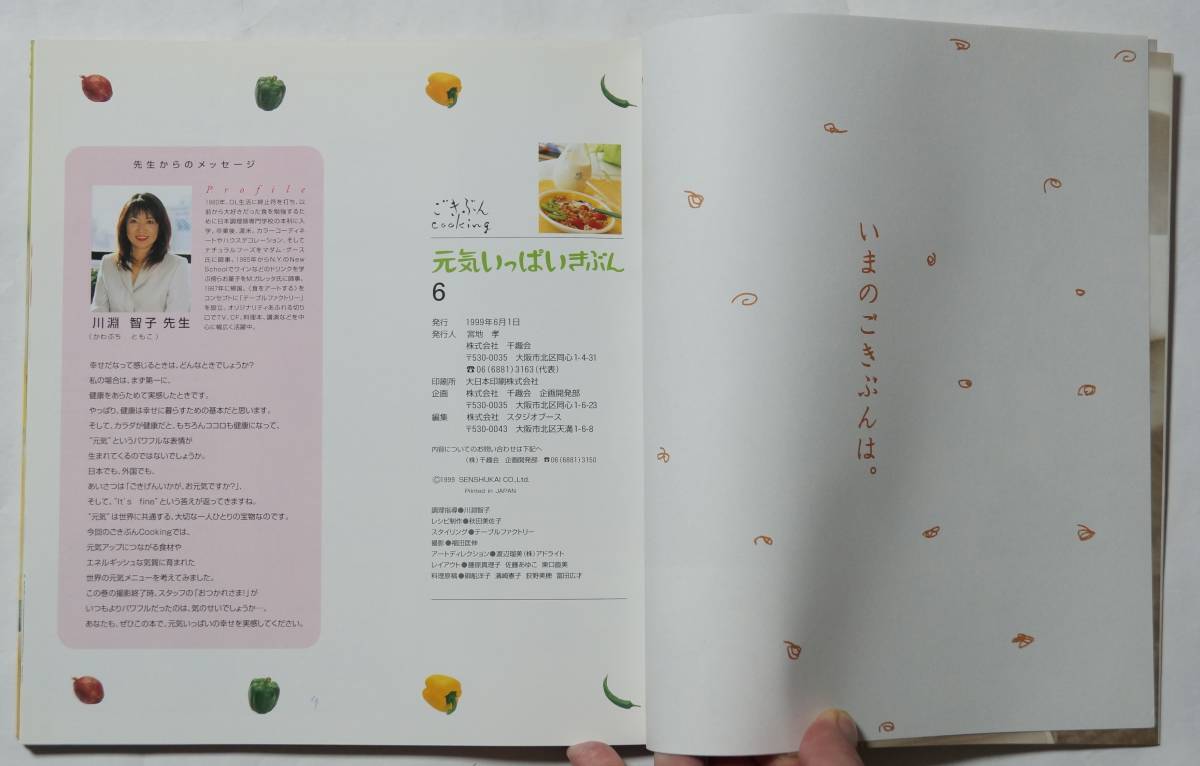 先生からのメッセージ
Profile
1980年、OL生活に終止符を打ち、以
前から大好きだった食を勉強するた
めに日本調理師専門学校の本科に入
学。卒業後、渡米。カラーコーディネ
ートやハウスデコレーション、そして
ナチュラルフーズをマダム・グース
氏に師事。1985年からN.Y.のNew
Schoolでワインなどのドリンクを学
び傍らお菓子をM.ガレッタ氏に師事。
1987年に帰国。〈食をアートする〉を
コンセプトに「テーブルファクトリー」
を設立。オリジナリティあふれる切り
口でTV、CF、料理本、講演などを中
心に幅広く活躍中。
川淵 智子 先生
(かわぶち ともこ)
幸せだなって感じるときは、どんなときでしょうか?
私の場合は、まず第一に、
健康をあらためて実感したときです。
やっぱり、健康は幸せに暮らすための基本だと思います。
そして、カラダが健康だと、もちろんココロも健康になって、
“元気”というパワフルな表情が
生まれてくるのではないでしょうか。
日本でも、外国でも、
あいさつは「ごきげんいかが、お元気ですか?」、
そして、“It's fine”という答えが返ってきますね。
“元気”は世界に共通する、大切な一人ひとりの宝物なのです。
今回のごきぶんCookingでは、
元気アップにつながる食材や
エネルギッシュな気質に育まれた
世界の元気メニューを考えてみました。
この巻の撮影終了時、スタッフの「おつかれさま!」が
いつもよりパワフルだったのは、気のせいでしょうか…。
あなたも、ぜひこの本で、元気いっぱいの幸せを実感してください。
ごきぶん
cooking
元気いっぱいきぶん
6
発行 1999年6月1日
発行人 宮地 孝
株式会社 千趣会
〒530-0035 大阪市北区同心1-4-31
☎06(6881)3163(代表)
印刷所 大日本印刷株式会社
企画 株式会社 千趣会 企画開発部
〒530-0035 大阪市北区同心1-6-23
編集 株式会社 スタジオブース
〒530-0043 大阪市北区天満1-6-8
内容についてのお問い合わせは下記へ
(株)千趣会 企画開発部 ☎06(6881)3150
©1999 SENSHUKAI CO.,Ltd.
Printed in JAPAN
調理指導●川淵智子
レシピ制作●秋田美佐子
スタイリング●テーブルファクトリー
撮影●福田匡伸
アートディレクション●渡辺瑠美(株)アドライト
レイアウト●藤原真理子 佐藤あゆこ 東口直美
料理原稿●御船洋子 濱崎憲子 荻野美穂 冨田広才
いまのごきぶんは。